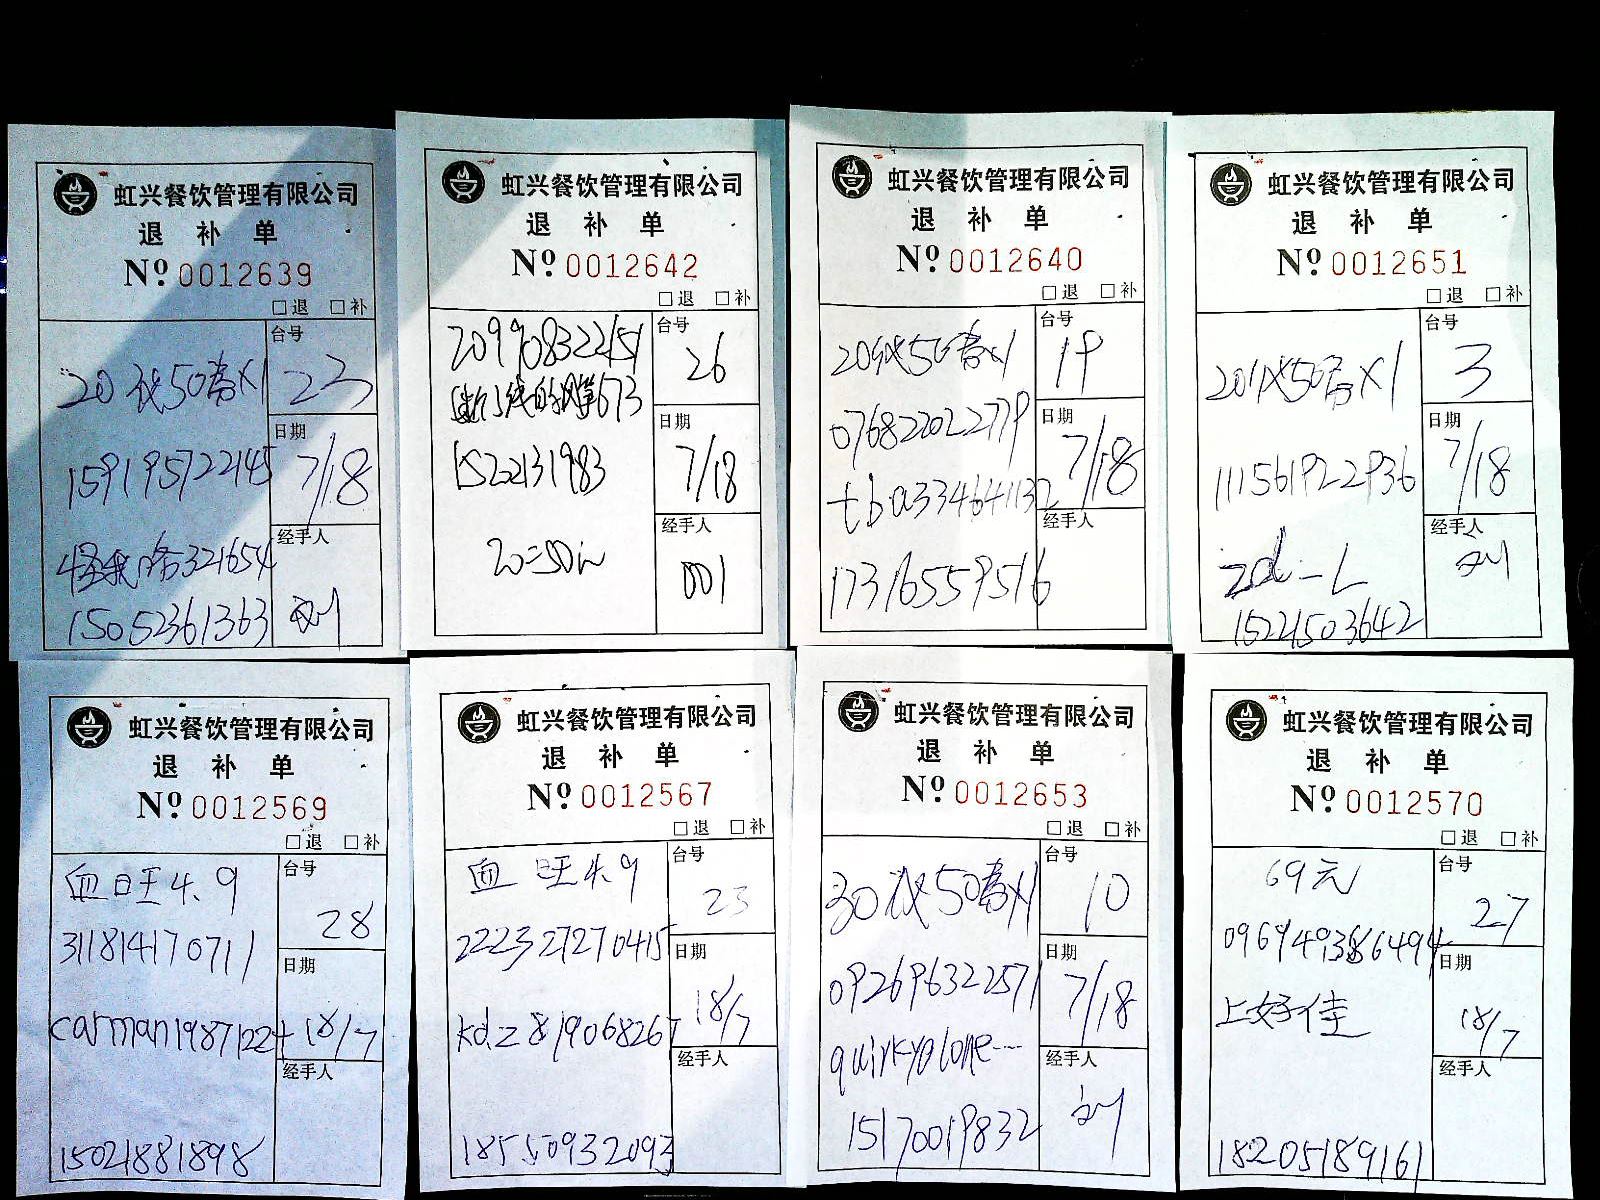 虹兴餐饮管理有限公司
退 补 单
Nº 0012639
□退 □补
台号
23
20找50套×1
日期
7/18
159195722145
经手人
怪我咯321654
15052361363
刘
虹兴餐饮管理有限公司
退 补 单
Nº 0012642
□退 □补
台号
26
209908322151
断了线的风筝673
日期
7/18
15222131983
经手人
20=50元
001
虹兴餐饮管理有限公司
退 补 单
Nº 0012640
□退 □补
台号
19
20找50套×1
日期
7/18
076822022779
tba334641132
经手人
17316559516
虹兴餐饮管理有限公司
退 补 单
Nº 0012651
□退 □补
台号
3
20找50套×1
日期
7/18
111561922936
经手人
zd-L
刘
15221503642
虹兴餐饮管理有限公司
退 补 单
Nº 0012569
□退 □补
台号
28
血旺4.9
311814170711
日期
18/7
carman19871224
经手人
15021881898
虹兴餐饮管理有限公司
退 补 单
Nº 0012567
□退 □补
台号
23
血旺4.9
222327270415
日期
18/7
kdz819068267
经手人
18550932093
虹兴餐饮管理有限公司
退 补 单
Nº 0012653
□退 □补
台号
10
30找50套×1
日期
7/18
092696322571
quirkyalone---
经手人
刘
15170019832
虹兴餐饮管理有限公司
退 补 单
Nº 0012570
□退 □补
台号
27
69元
日期
18/7
上好佳
经手人
18205189161